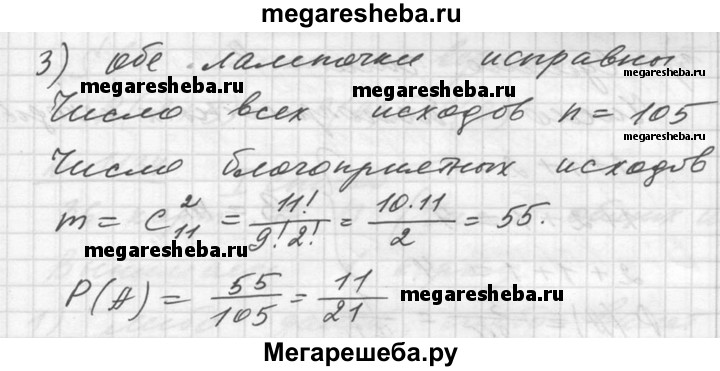 megaresheba.ru
3) обе лампочки исправны
megaresheba.ru
megaresheba.ru
Число всех исходов n = 105
megaresheba.ru
Число благоприятных исходов
m = C²₁₁ = 11!/9!2! = 10·11/2 = 55.
megaresheba.ru
P(A) = 55/105 = 11/21
megaresheba.ru
Мегарешеба.ру